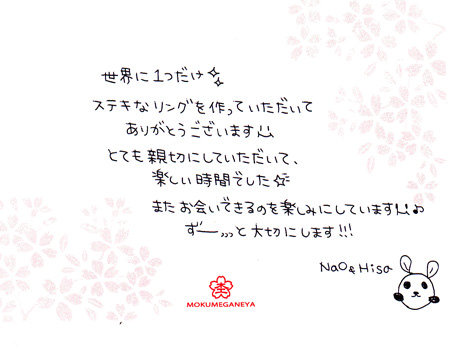 世界に1つだけ
ステキなリングを作っていただいて
ありがとうございます
とても親切にしていただいて、
楽しい時間でした
またお会いできるのを楽しみにしています♪
ずーっ,,,と大切にします!!!
NaO & Hisa
MOKUMEGANEYA